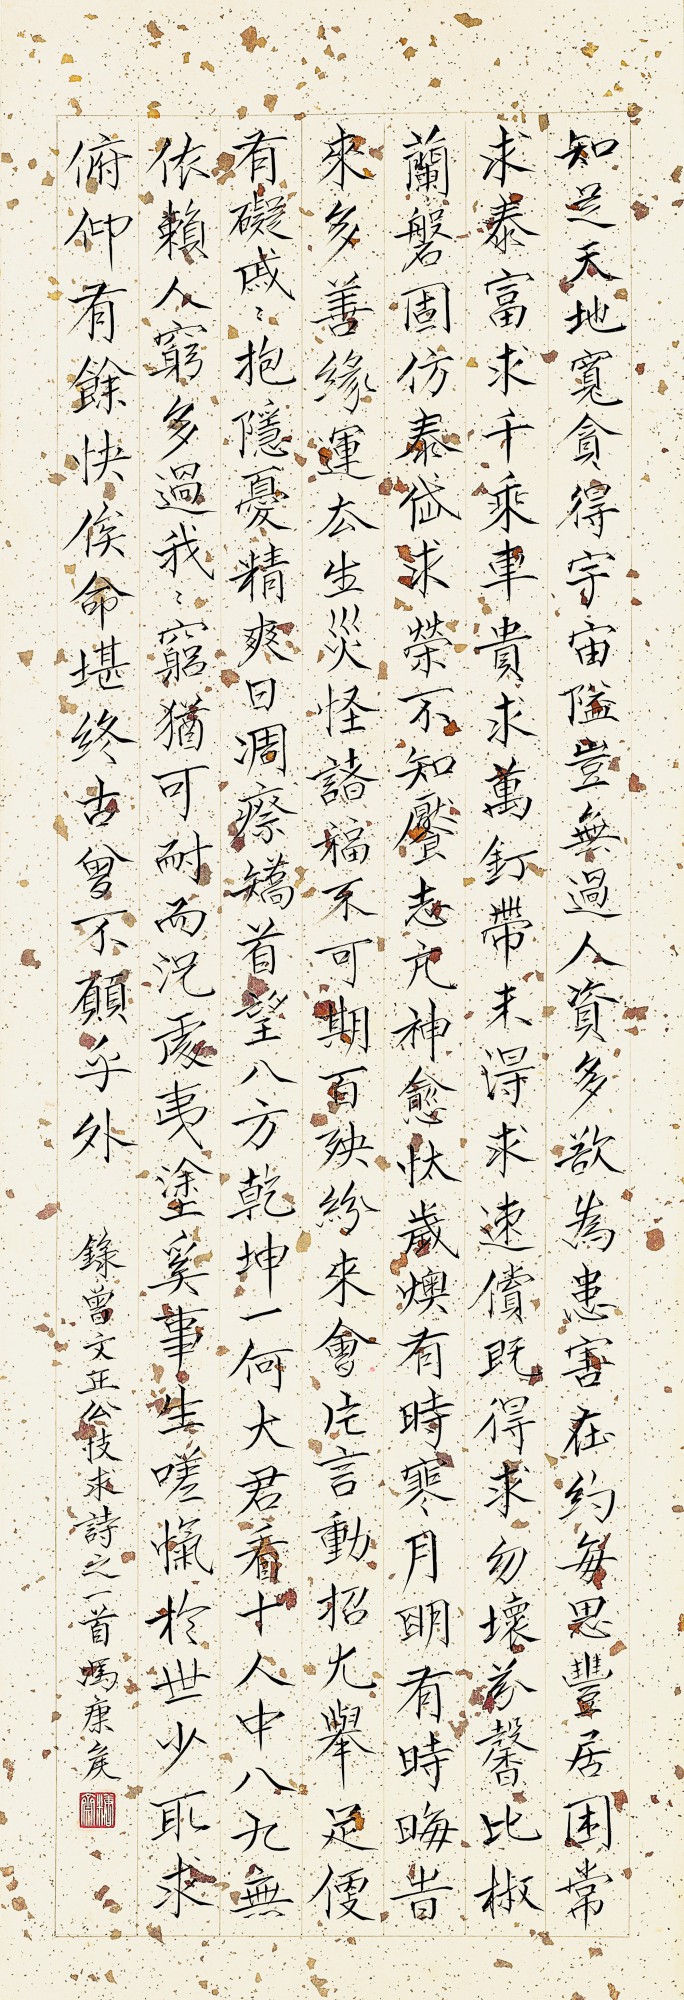 知足天地寬貪得宇宙隘豈無過人資多欲為患害在約每思豐居困常
求泰富求千乘車貴求萬釘帶未得求速償既得求勿壞芬馨比椒
蘭磐固仿泰岱求榮不知饜志亢神愈忲歲燠有時寒月明有時晦旹
來多善緣運去生災怪諸福不可期百殃紛來會片言動招尤舉足便
有礙戚〻抱隱憂精爽日凋瘵矯首望八方乾坤一何大君看十人中八九無
依賴人窮多過我〻窮猶可耐而況處夷塗奚事生嗟愾於世少所求
俯仰有餘快俟命堪終古曾不願乎外
錄曾文正公技求詩之一首馮康矦